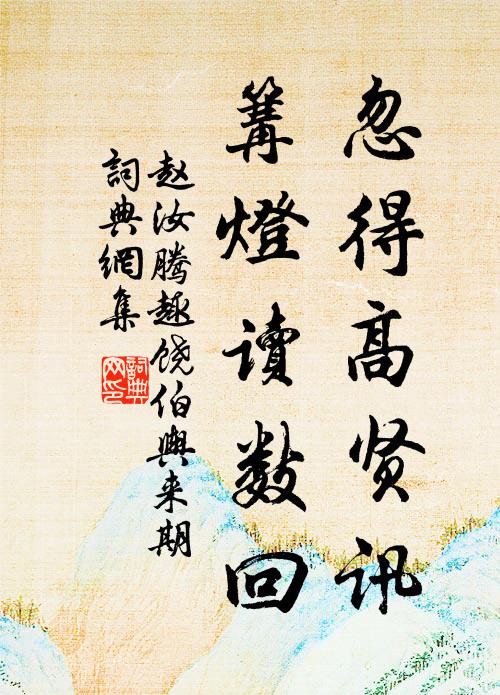 忽得高贤讯
篝燈讀数回
赵汝腾趣饶伯舆来期
詞典網集
詞典網印